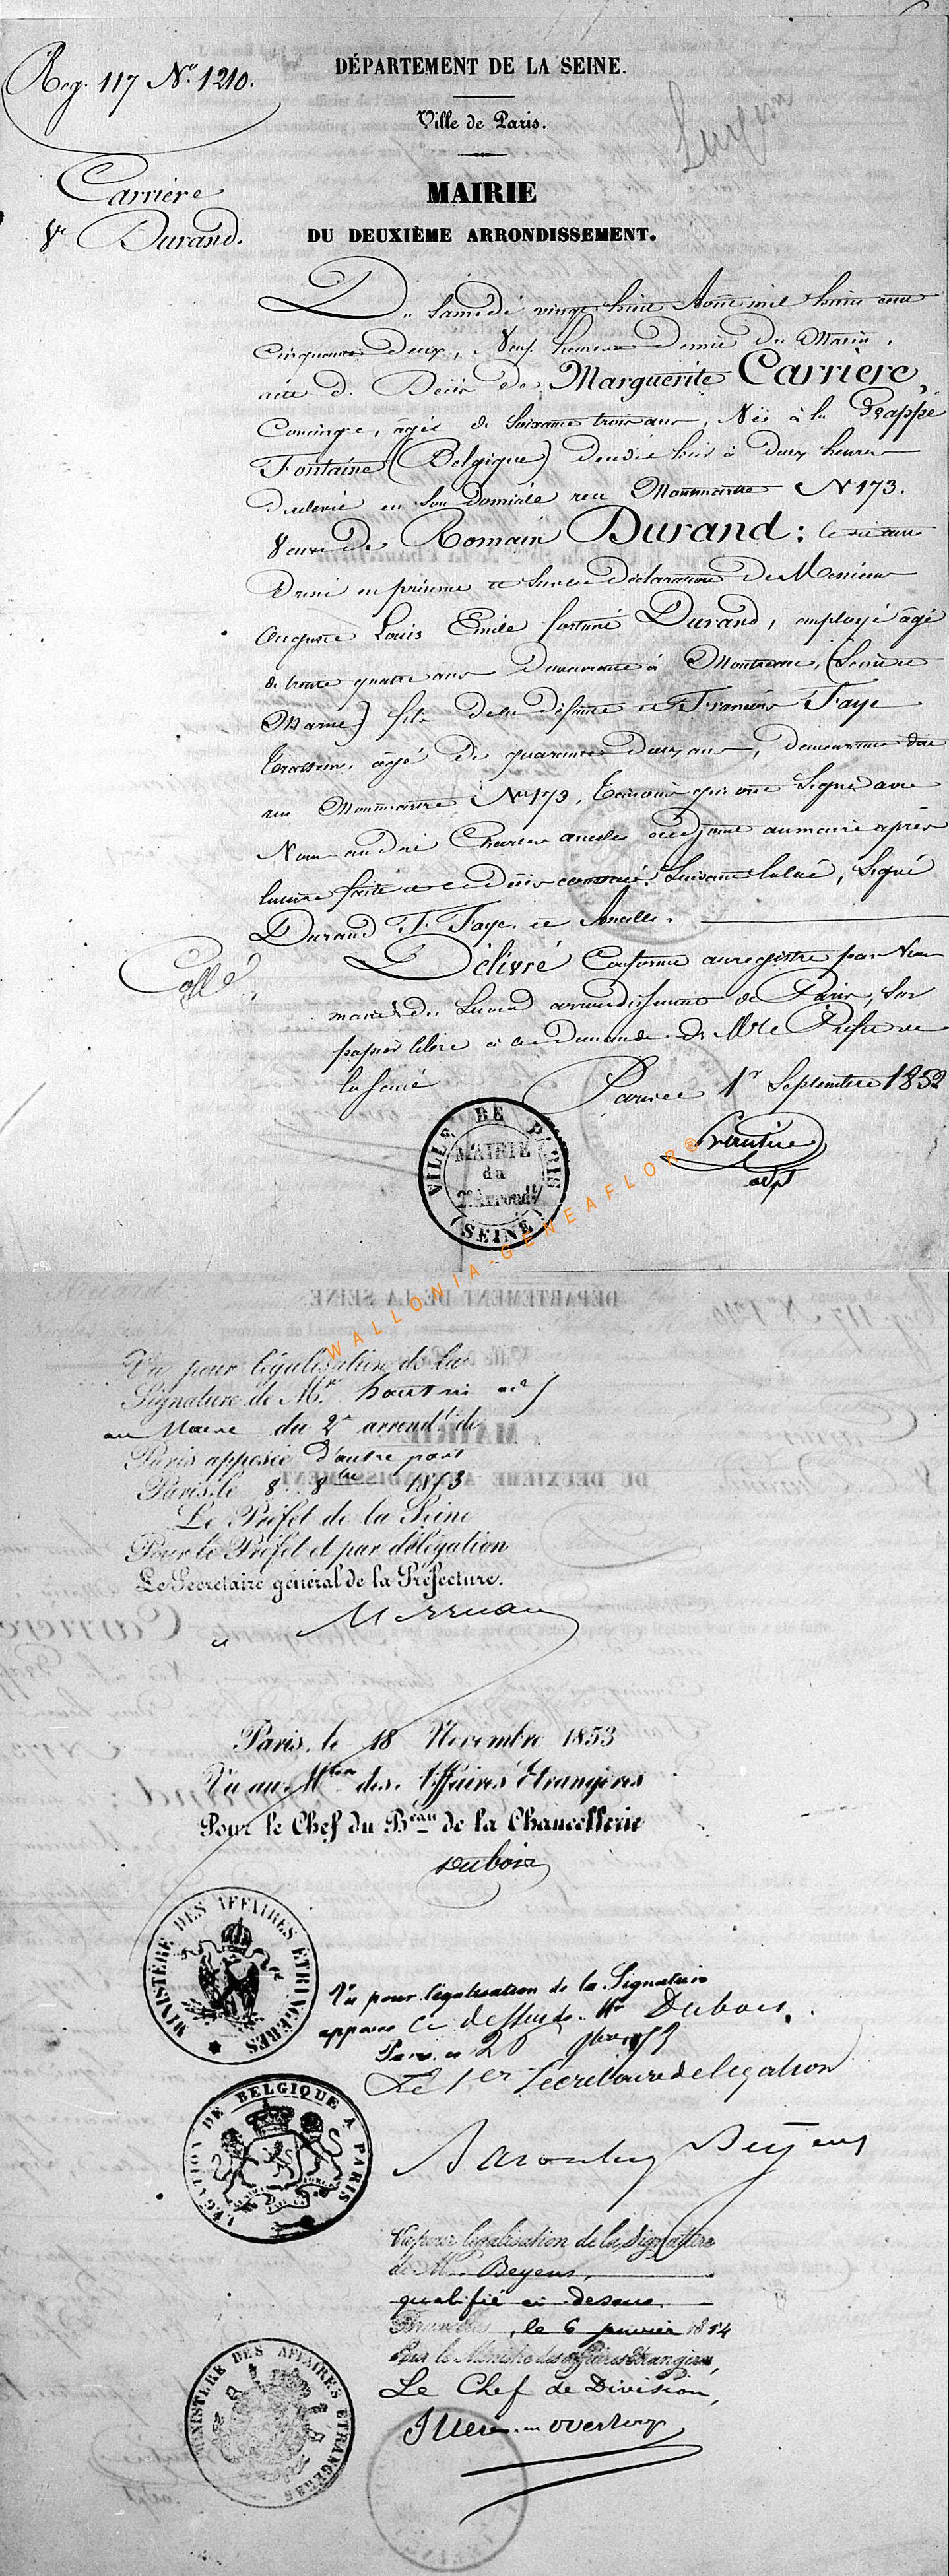 Reg. 117 N° 1210.
DÉPARTEMENT DE LA SEINE.
Ville de Paris.
Carrière
Ve Durand.
MAIRIE
DU DEUXIÈME ARRONDISSEMENT.
Du Samedi vingt huit Août mil huit cent
Cinquante Deux, Neuf heures Demie du Matin,
acte de Décès de Marguerite Carrière,
Concierge, agée de Soixante trois ans, Née à la Grappe
Fontaine (Belgique) Décédée hier à Deux heures
en Son Domicile rue Montmartre N 173.
Veuve De Romain Durand: le dit acte
Dressé en présence et Sur les déclarations De Messieurs
Auguste Louis Emile fortuné Durand, employé âgé
de trente quatre ans Demeurant à (Seine et
Marne) fils de la défunte et François Faye
âgé De quarante Deux ans, Demeurant dite
rue Montmartre No 173, Témoins qui ont Signé avec
Nous Charles Ancelle adjoint au maire après
lecture faite et le Décès constaté Suivant la loi, Signé
Durand F. Faye et Ancelle.
Collé
Délivré Conforme au registre par Nous
maire du Second arrondissement de Paris, Sur
papier libre à la Demande de Mr le Préfet de
la Seine
Paris ce 1r Septembre 1852
adjt
VILLE DE PARIS
MAIRIE
du
2e Arrondt
(SEINE)
WALLONIA-GENEAFLOR®
Vu pour légalisation de la
Signature de Mr
au Maire du 2e arrondt de
Paris apposée d'autre part
Paris, le 8 8bre 1853
Le Préfet de la Seine
Pour le Préfet et par délégation
Le Secrétaire général de la Préfecture.
Merruau
Paris, le 18 Novembre 1853
Vu au Mtère des Affaires Etrangères
Pour le Chef du Beau de la Chancellerie
Dubois
MINISTÈRE DES AFFAIRES ÉTRANGÈRES
Vu pour légalisation de la Signature
apposée ci dessus de Mr Dubois.
Paris, ce 53
Le 1er Secrétaire de légation
LÉGATION DE BELGIQUE A PARIS
Baron Beyens
Vu pour légalisation de la Signature
de M. Beyens,
qualifié ci dessus.
Bruxelles, le 6 janvier 1854
Pour le Ministre des affaires étrangères,
Le Chef de Division,
MINISTÈRE DES AFFAIRES ÉTRANGÈRES